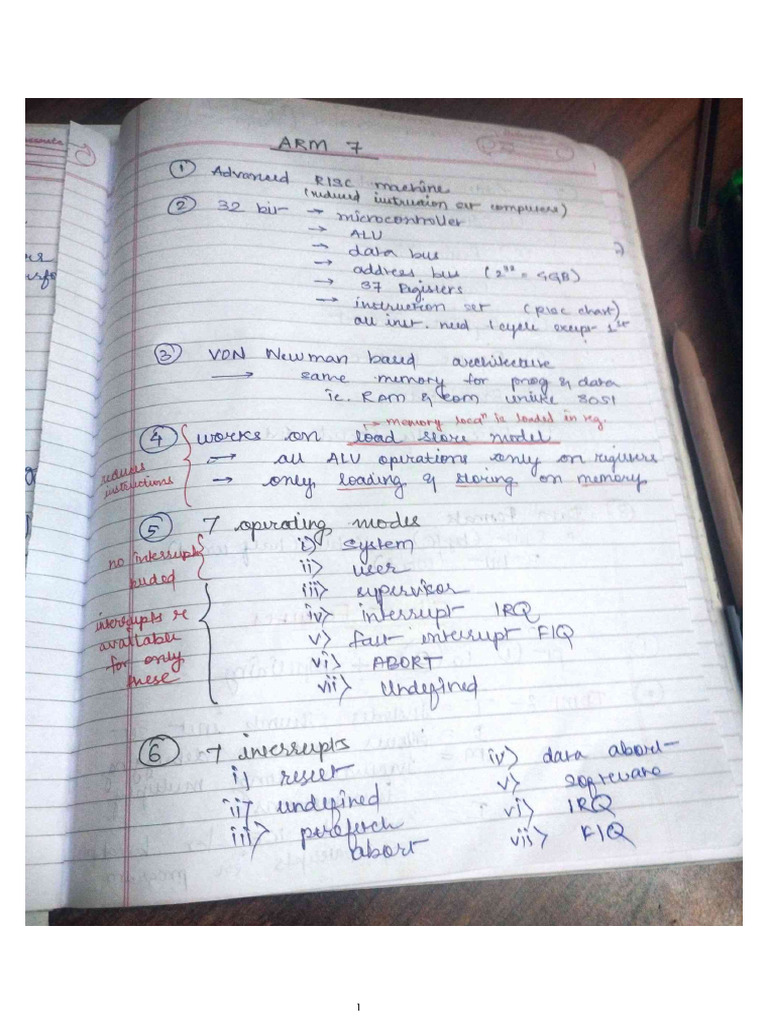 ARM 7
① Advanced RISC machine
(reduced instruction set computers)
② 32 bit → microcontroller
→ ALU
→ data bus
→ address bus (2³² = 4GB)
→ 37 Registers
→ instruction set (RISC chart)
all inst. need 1 cycle except 1st
③ VON Newman based architecture
→ same memory for prog & data
ie. RAM & ROM unlike 8051
→ memory locaⁿ is loaded in reg.
④ works on load store model
→ all ALU operations only on registers
→ only loading & storing on memory
reduces
instructions
⑤ 7 operating modes
i) system
ii) user
no interrupts
needed
iii) supervisor
iv) interrupt IRQ
v) fast interrupt FIQ
vi) ABORT
vii) Undefined
interrupts r
available
for only
these
⑥ 7 interrupts
i) reset
ii) undefined
iii) prefetch
abort
iv) data abort
v) software
vi) IRQ
vii) FIQ
1